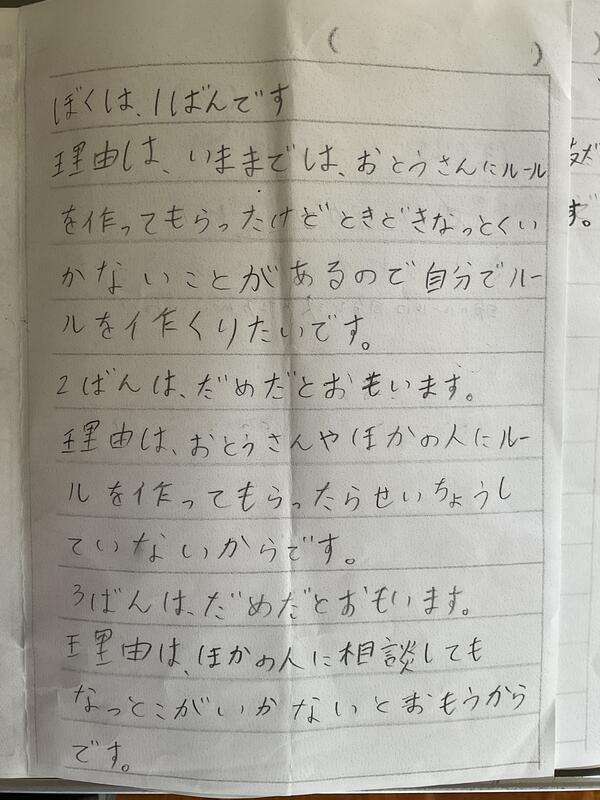 ( )
ぼくは、1ばんです
理由は、いままでは、おとうさんにルール
を作ってもらったけどときどきなっとくい
かないことがあるので自分でルー
ルを作くりたいです。
2ばんは、だめだとおもいます。
理由は、おとうさんやほかの人にルー
ルを作ってもらったらせいちょうし
ていないからです。
3ばんは、だめだとおもいます。
理由は、ほかの人に相談しても
なっとこがいかないとおもうから
です。
友だ
す。